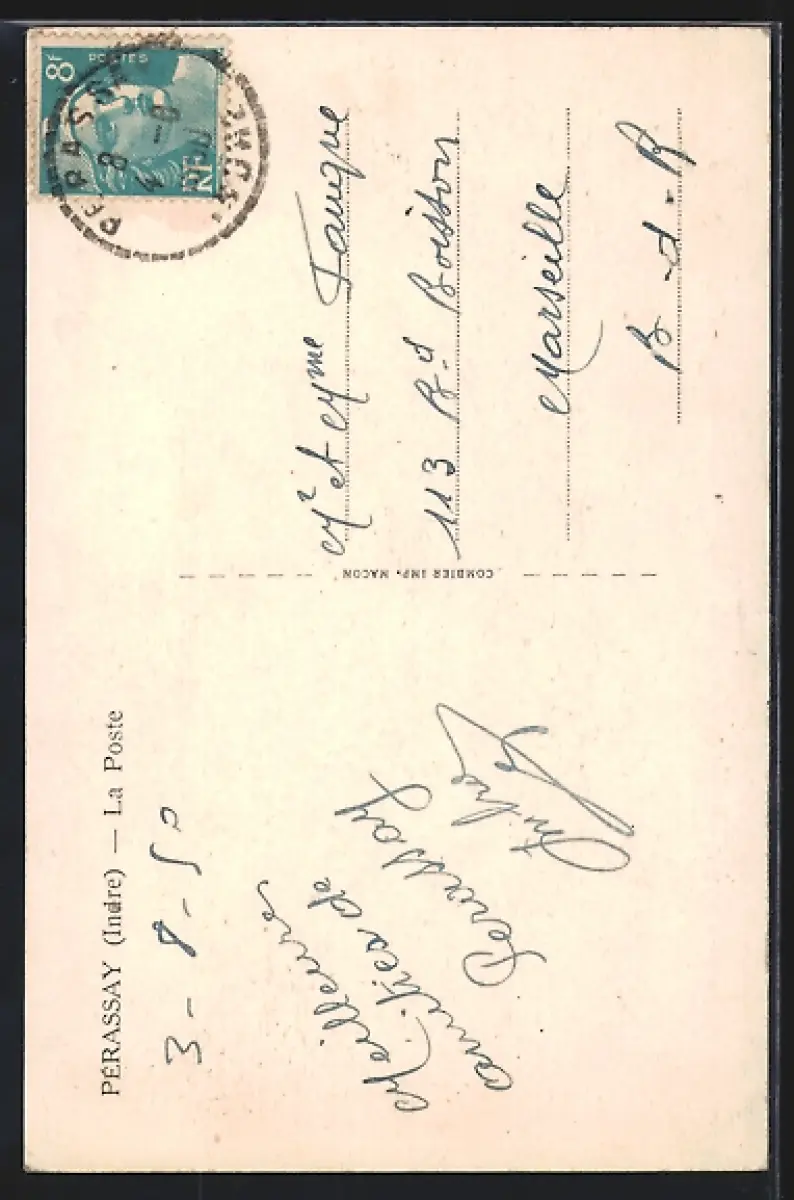 PÉRASSAY (Indre) — La Poste
3-8-50
Meilleures
amitiés de
Perassay
André
COMBIER IMP. MACON
8F
POSTES
RF
PERASSAY
Mr et Mme
113 Bd Boisson
Marseille
B-d-R